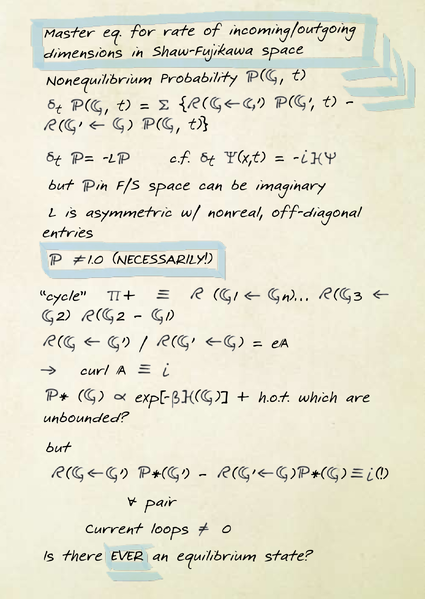 Master eq. for rate of incoming/outgoing
dimensions in Shaw-Fujikawa space
Nonequilibrium Probability ℙ(𝔾, t)
δt ℙ(𝔾, t) = Σ {R(𝔾←𝔾') ℙ(𝔾', t) -
R(𝔾' ← 𝔾) ℙ(𝔾, t)}
δt ℙ= -Lℙ c.f. δt Ψ(x,t) = -iℍΨ
but ℙin F/S space can be imaginary
L is asymmetric w/ nonreal, off-diagonal
entries
ℙ ≠1.0 (NECESSARILY!)
"cycle" Π+ ≡ R (𝔾1 ← 𝔾n)... R(𝔾3 ←
𝔾2) R(𝔾2 - 𝔾1)
R(𝔾 ← 𝔾') / R(𝔾' ←𝔾) = e𝔸
→ curl 𝔸 ≡ i
ℙ* (𝔾) ∝ exp[-βℍ(𝔾)] + h.o.t. which are
unbounded?
but
R(𝔾←𝔾') ℙ*(𝔾') - R(𝔾'←𝔾)ℙ*(𝔾)≡i(!)
∀ pair
Current loops ≠ 0
Is there EVER an equilibrium state?